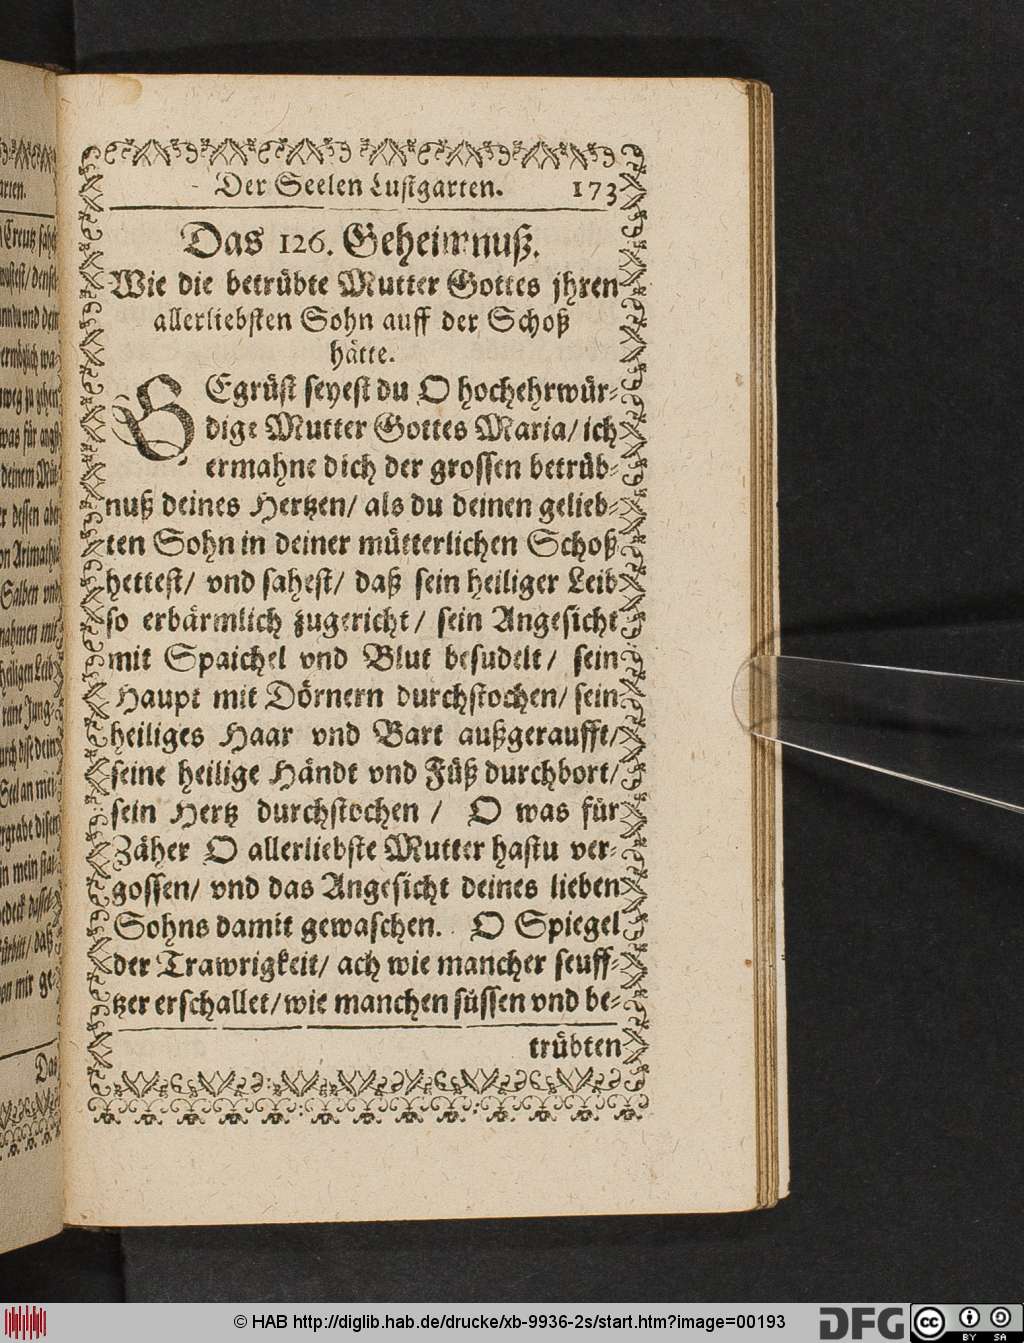 Der Seelen Lustgarten. 173
Das 126. Geheimnuß.
Wie die betrübte Mutter Gottes jhren
allerliebsten Sohn auff der Schoß
hätte.
GEgrüst seyest du O hochehrwür-
dige Mutter Gottes Maria/ ich
ermahne dich der grossen betrüb-
nuß deines Hertzen/ als du deinen gelieb-
ten Sohn in deiner mütterlichen Schoß
hettest/ vnd sahest/ daß sein heiliger Leib
so erbärmlich zugericht/ sein Angesicht
mit Spaichel vnd Blut besudelt/ sein
Haupt mit Dörnern durchstochen/ sein
heiliges Haar vnd Bart außgeraufft/
seine heilige Händt vnd Füß durchbort/
sein Hertz durchstochen/ O was für
Zäher O allerliebste Mutter hastu ver-
gossen/ vnd das Angesicht deines lieben
Sohns damit gewaschen. O Spiegel
der Trawrigkeit/ ach wie mancher seuff-
tzer erschallet/ wie manchen süssen vnd be-
trübten
© HAB http://diglib.hab.de/drucke/xb-9936-2s/start.htm?image=00193
DFG
cc
BY SA